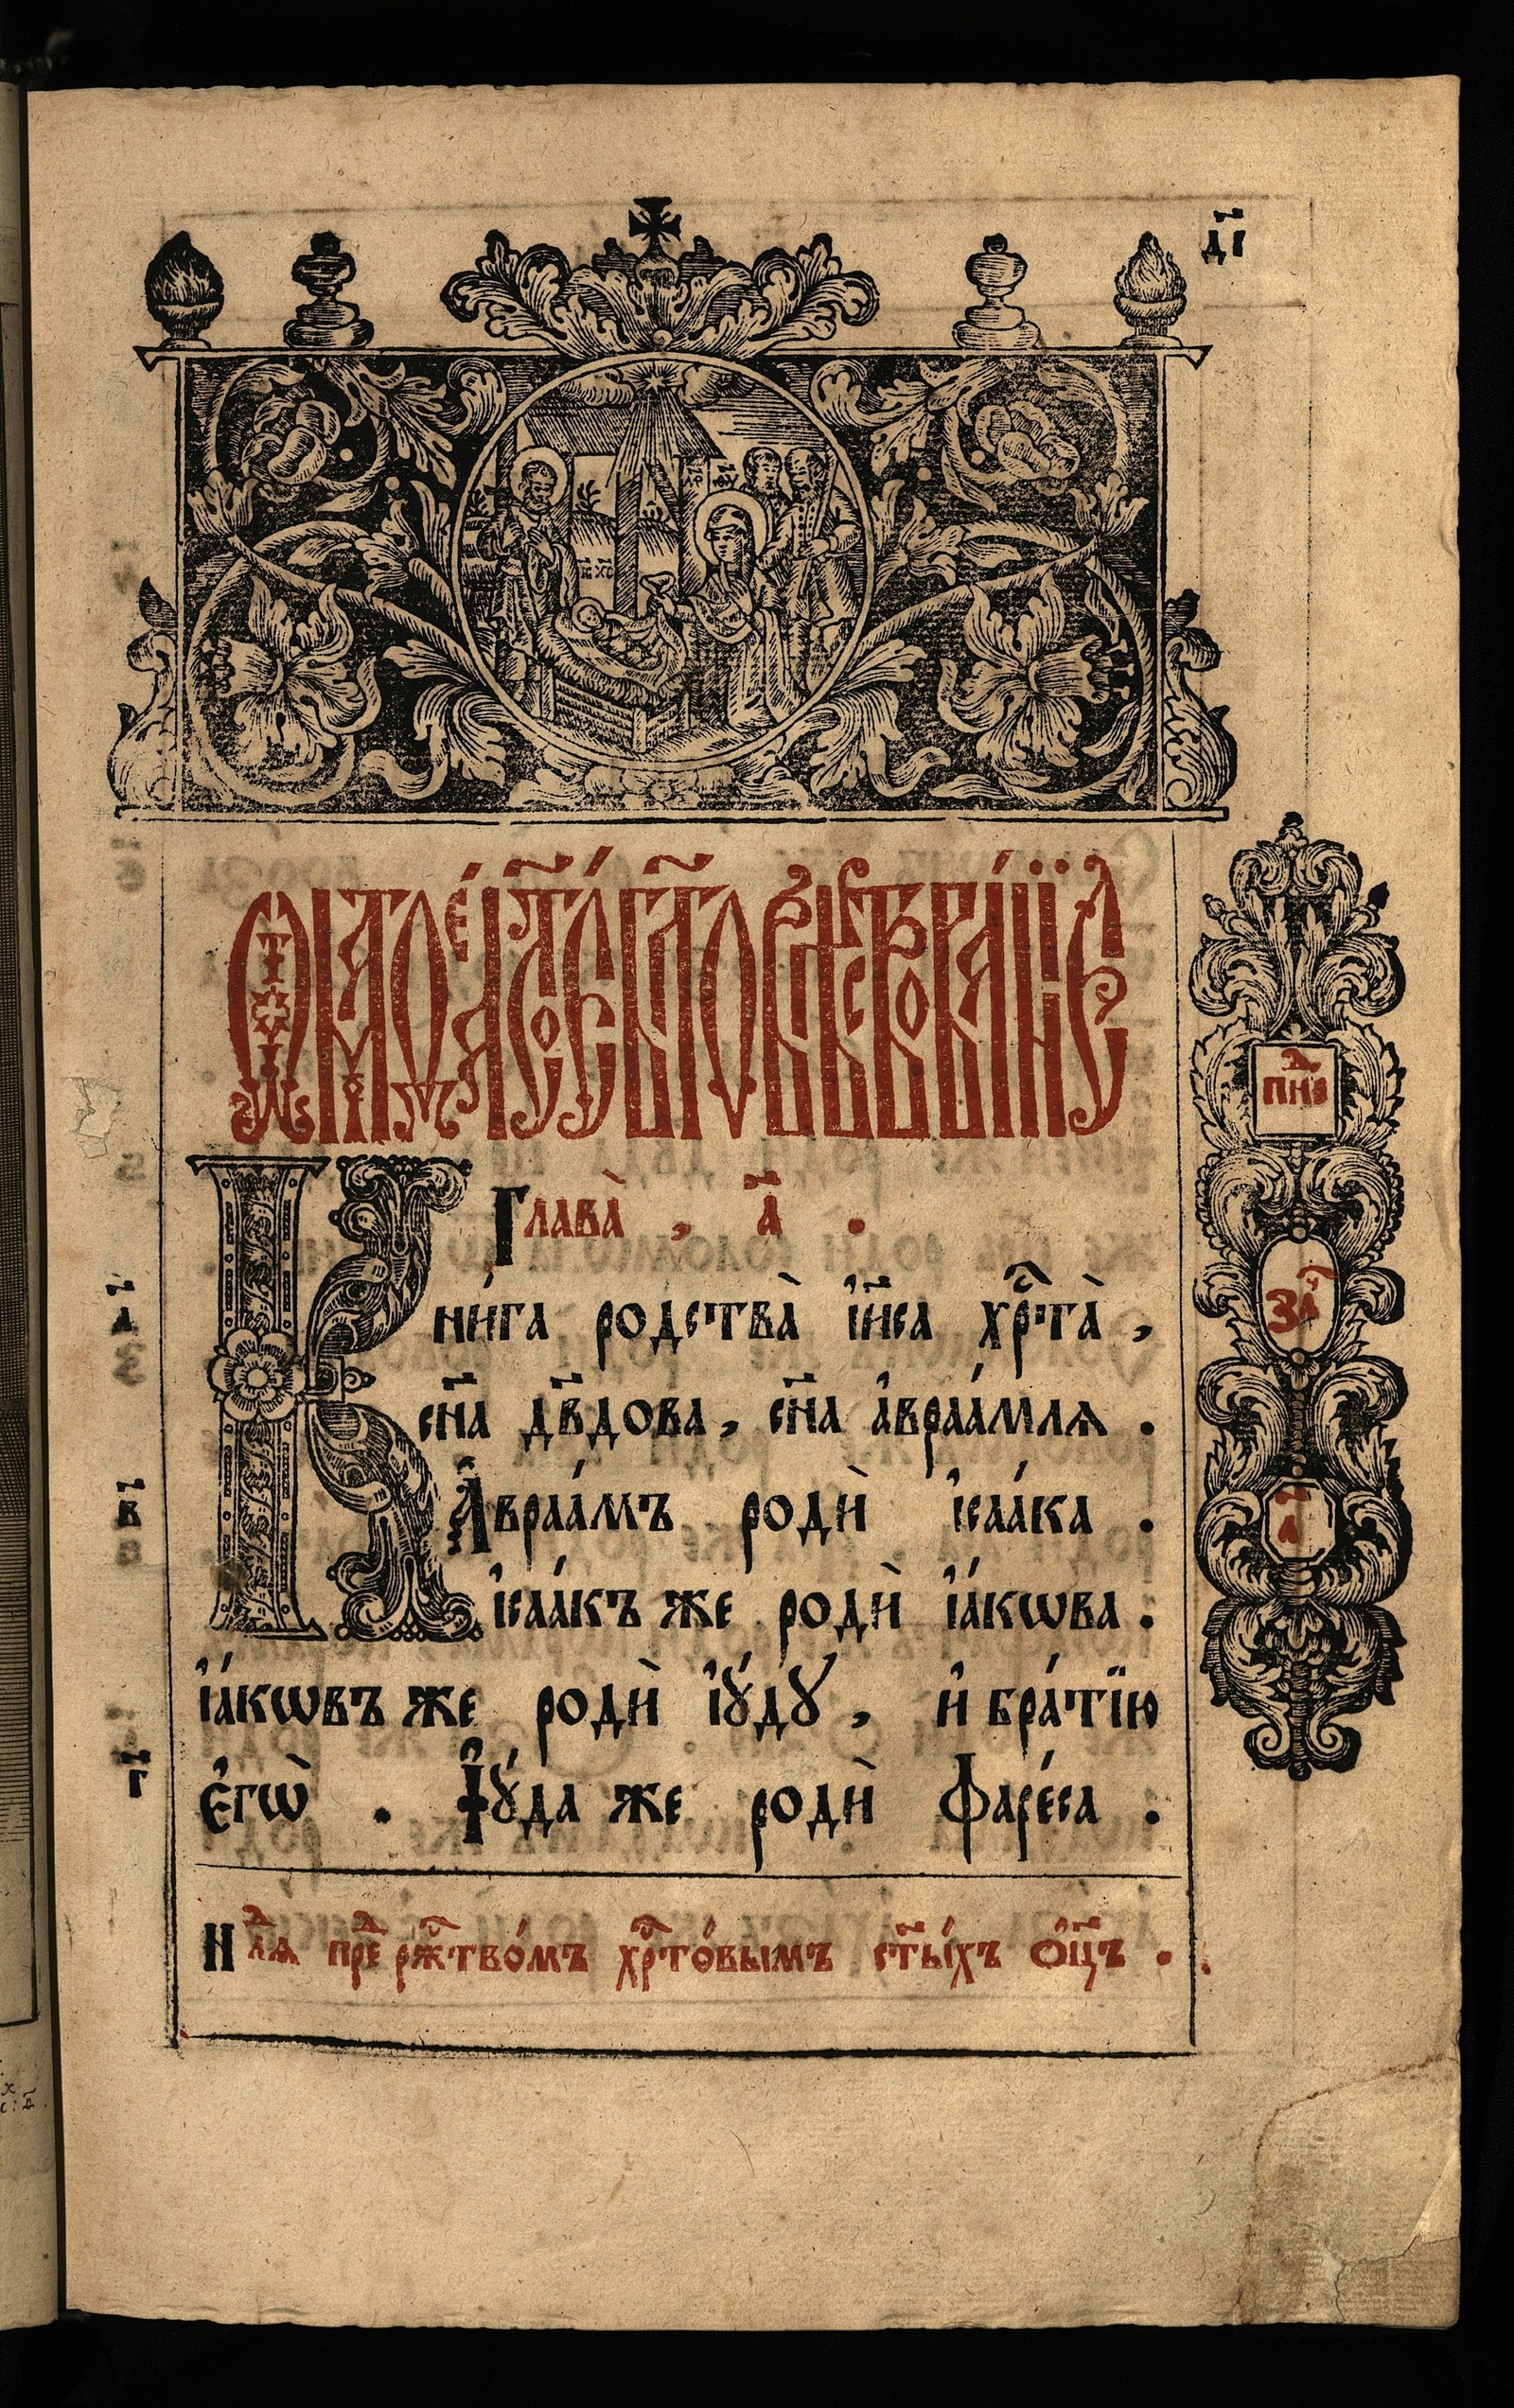 д҃і
І҃С Х҃С
Ѿ маѳе́а ст҃а́гѡ бл҃говѣствова́нїе
пн҃д
Глава̀ , а҃ .
Кни́га родства̀ і҆и҃са хрⷭ҇та̀ ,
зач҃
а҃
сн҃а дв҃дова , сн҃а а҆враа́мля .
в҃
А҆враа́мъ родѝ і҆саа́ка .
а҃
і҆саа́къ же родѝ і҆а́кѡва .
і҆а́кѡвъ же родѝ і҆ꙋ́дꙋ , и҆ бра́тїю
г҃
є҆гѡ̀ . І҆ꙋ́да же родѝ Фаре́са .
Нⷣлѧ преⷣ рж҃тво́мъ хрⷭ҇то́вымъ ст҃ы́хъ ѻ҆ц҃ъ .